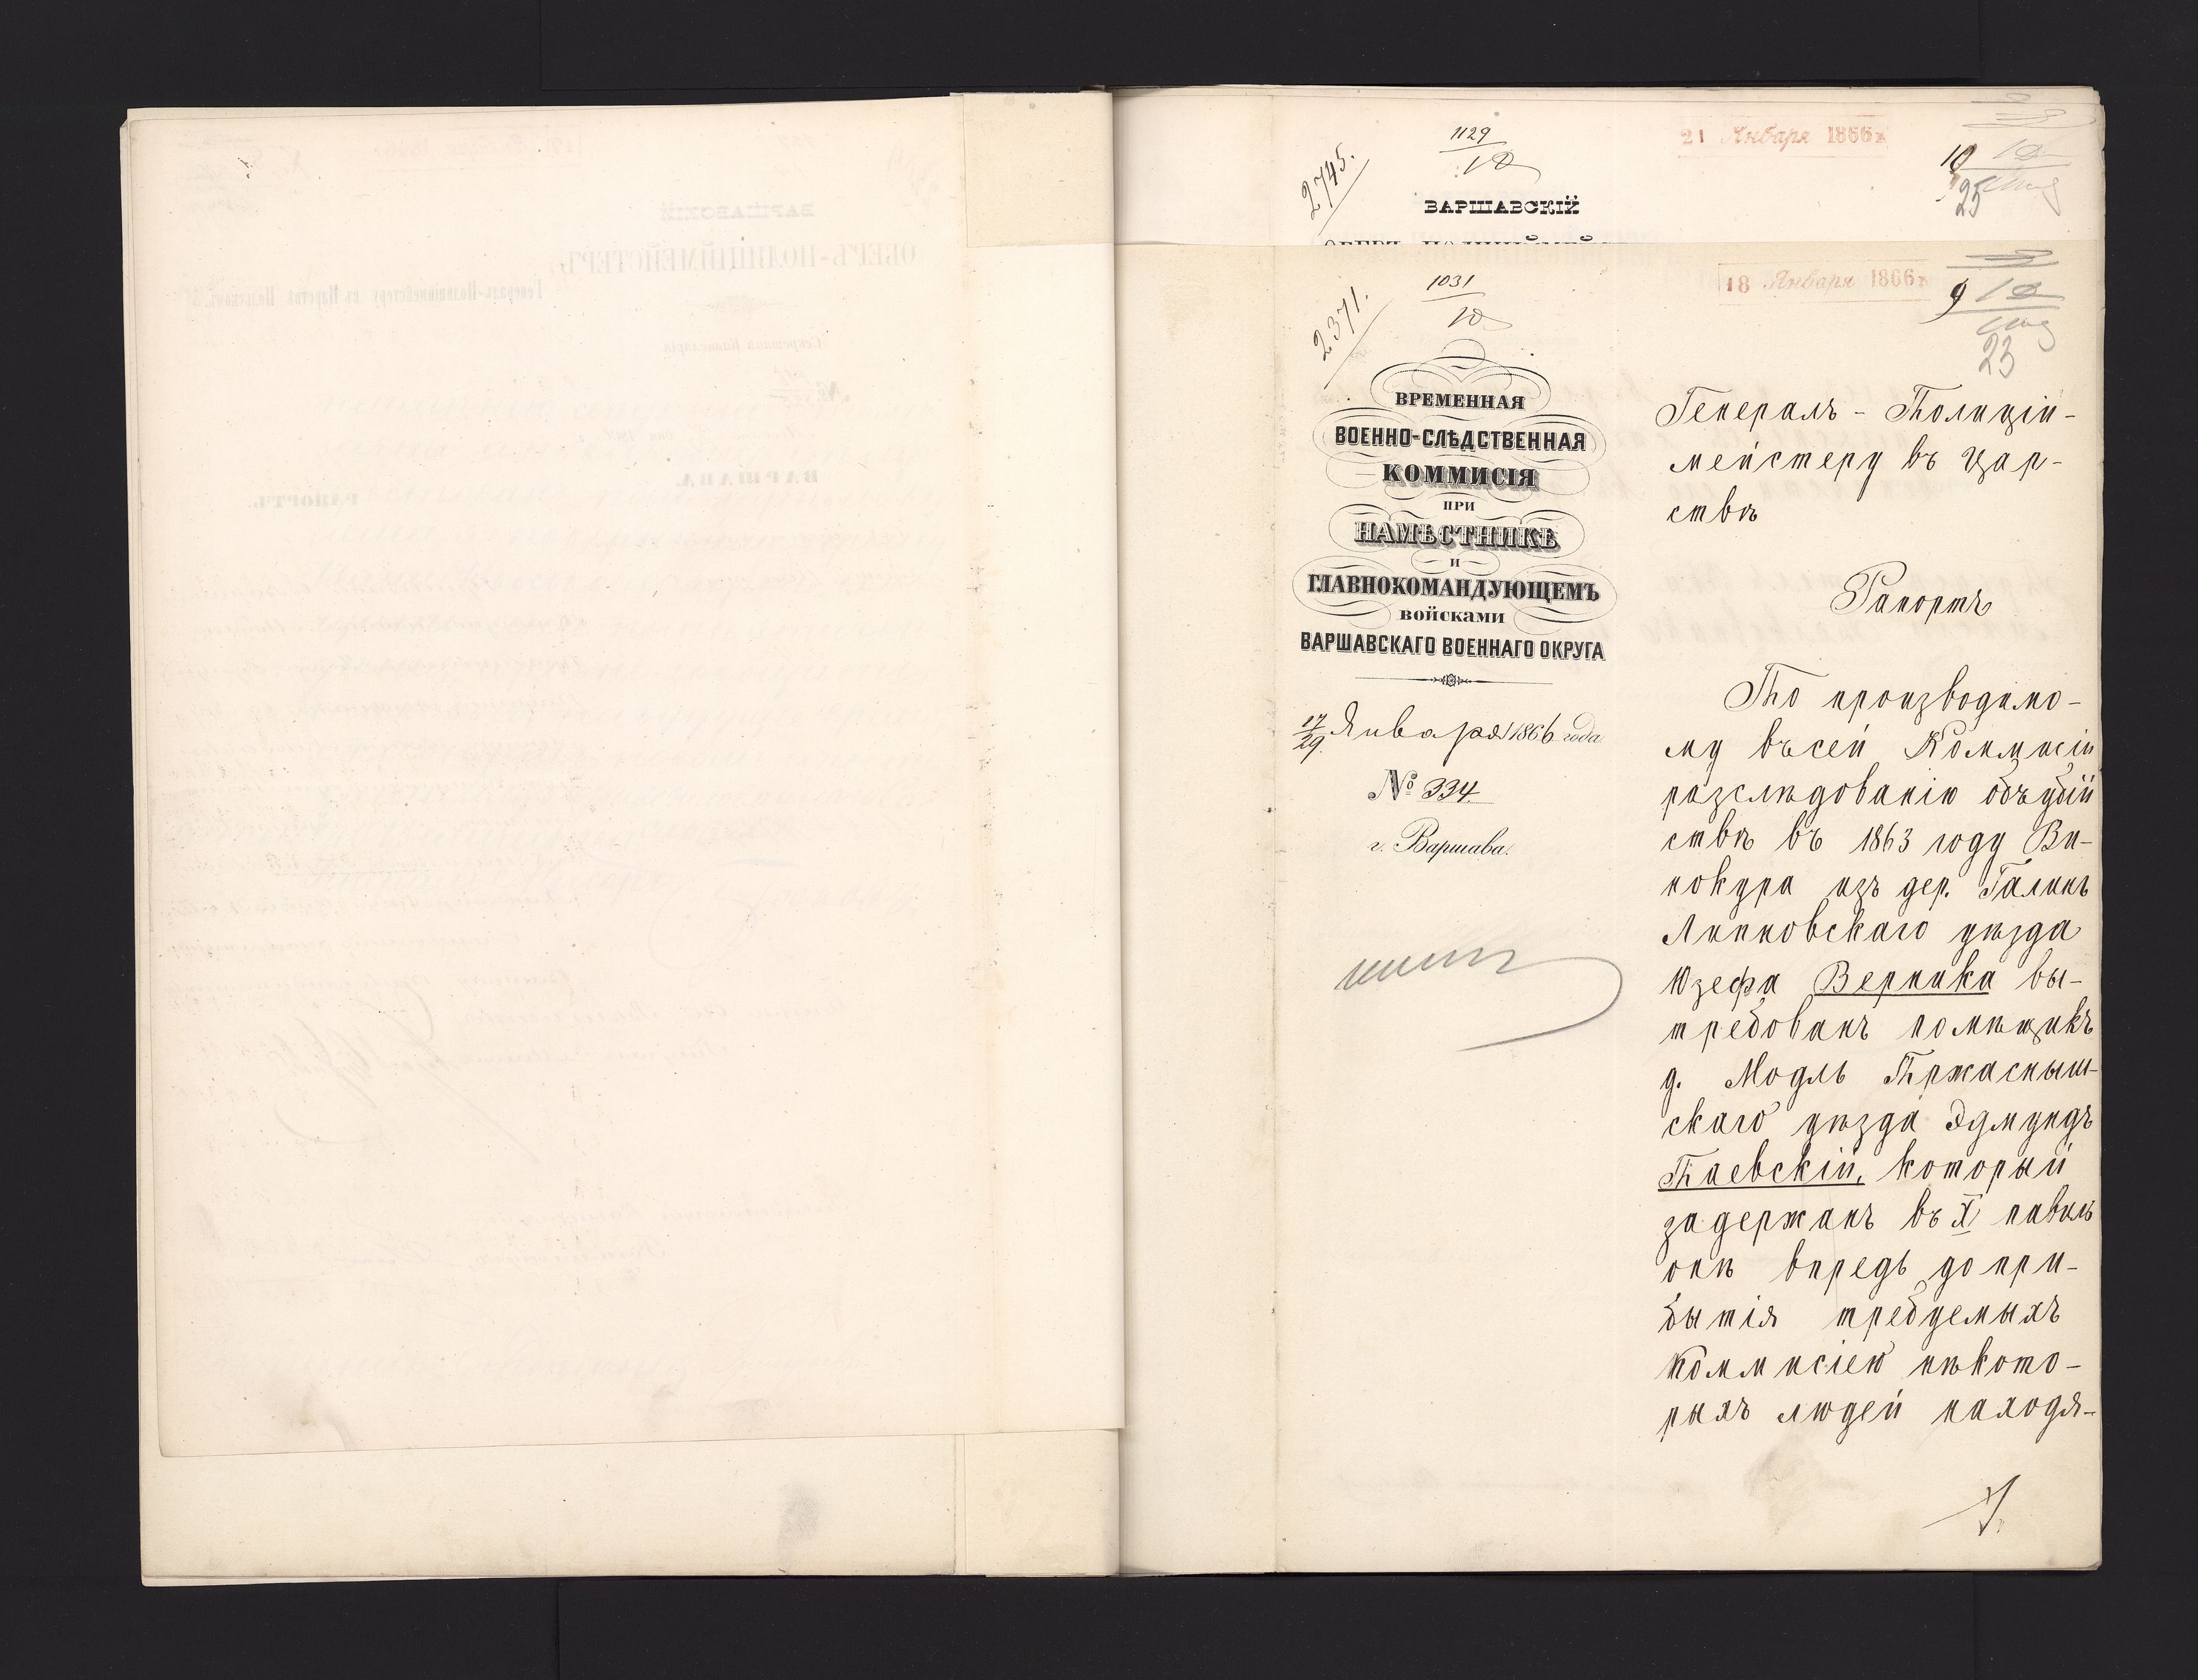 1129
10
2745.
21 Января 1866 г.
10
25
ВАРШАВСКІЙ
1031
10
2371.
18 Января 1866 г.
9
23
ВРЕМЕННАЯ
ВОЕННО-СЛѢДСТВЕННАЯ
КОММИСІЯ
ПРИ
НАМѢСТНИКѢ
И
ГЛАВНОКОМАНДУЮЩЕМЪ
ВОЙСКАМИ
ВАРШАВСКАГО ВОЕННАГО ОКРУГА
17/29 Января 1866 года
№ 334.
г. Варшава.
Генералъ-Полицій-
мейстеру въ Цар-
ствѣ
Рапортъ
По производимо-
му въ сей Коммисіи
разслѣдованію объ убій
ствѣ въ 1863 году Ви-
нокура изъ дер. Галинъ
Липновскаго уѣзда
Юзефа Верника вы-
требованъ помѣщикъ
д. Модль Пржасныш-
скаго уѣзда Эдмундъ
Гаевскій, который
задержанъ въ X павил
онѣ впредь до при-
бытія требуемыхъ
Коммисіею нѣкото-
рыхъ людей находя-